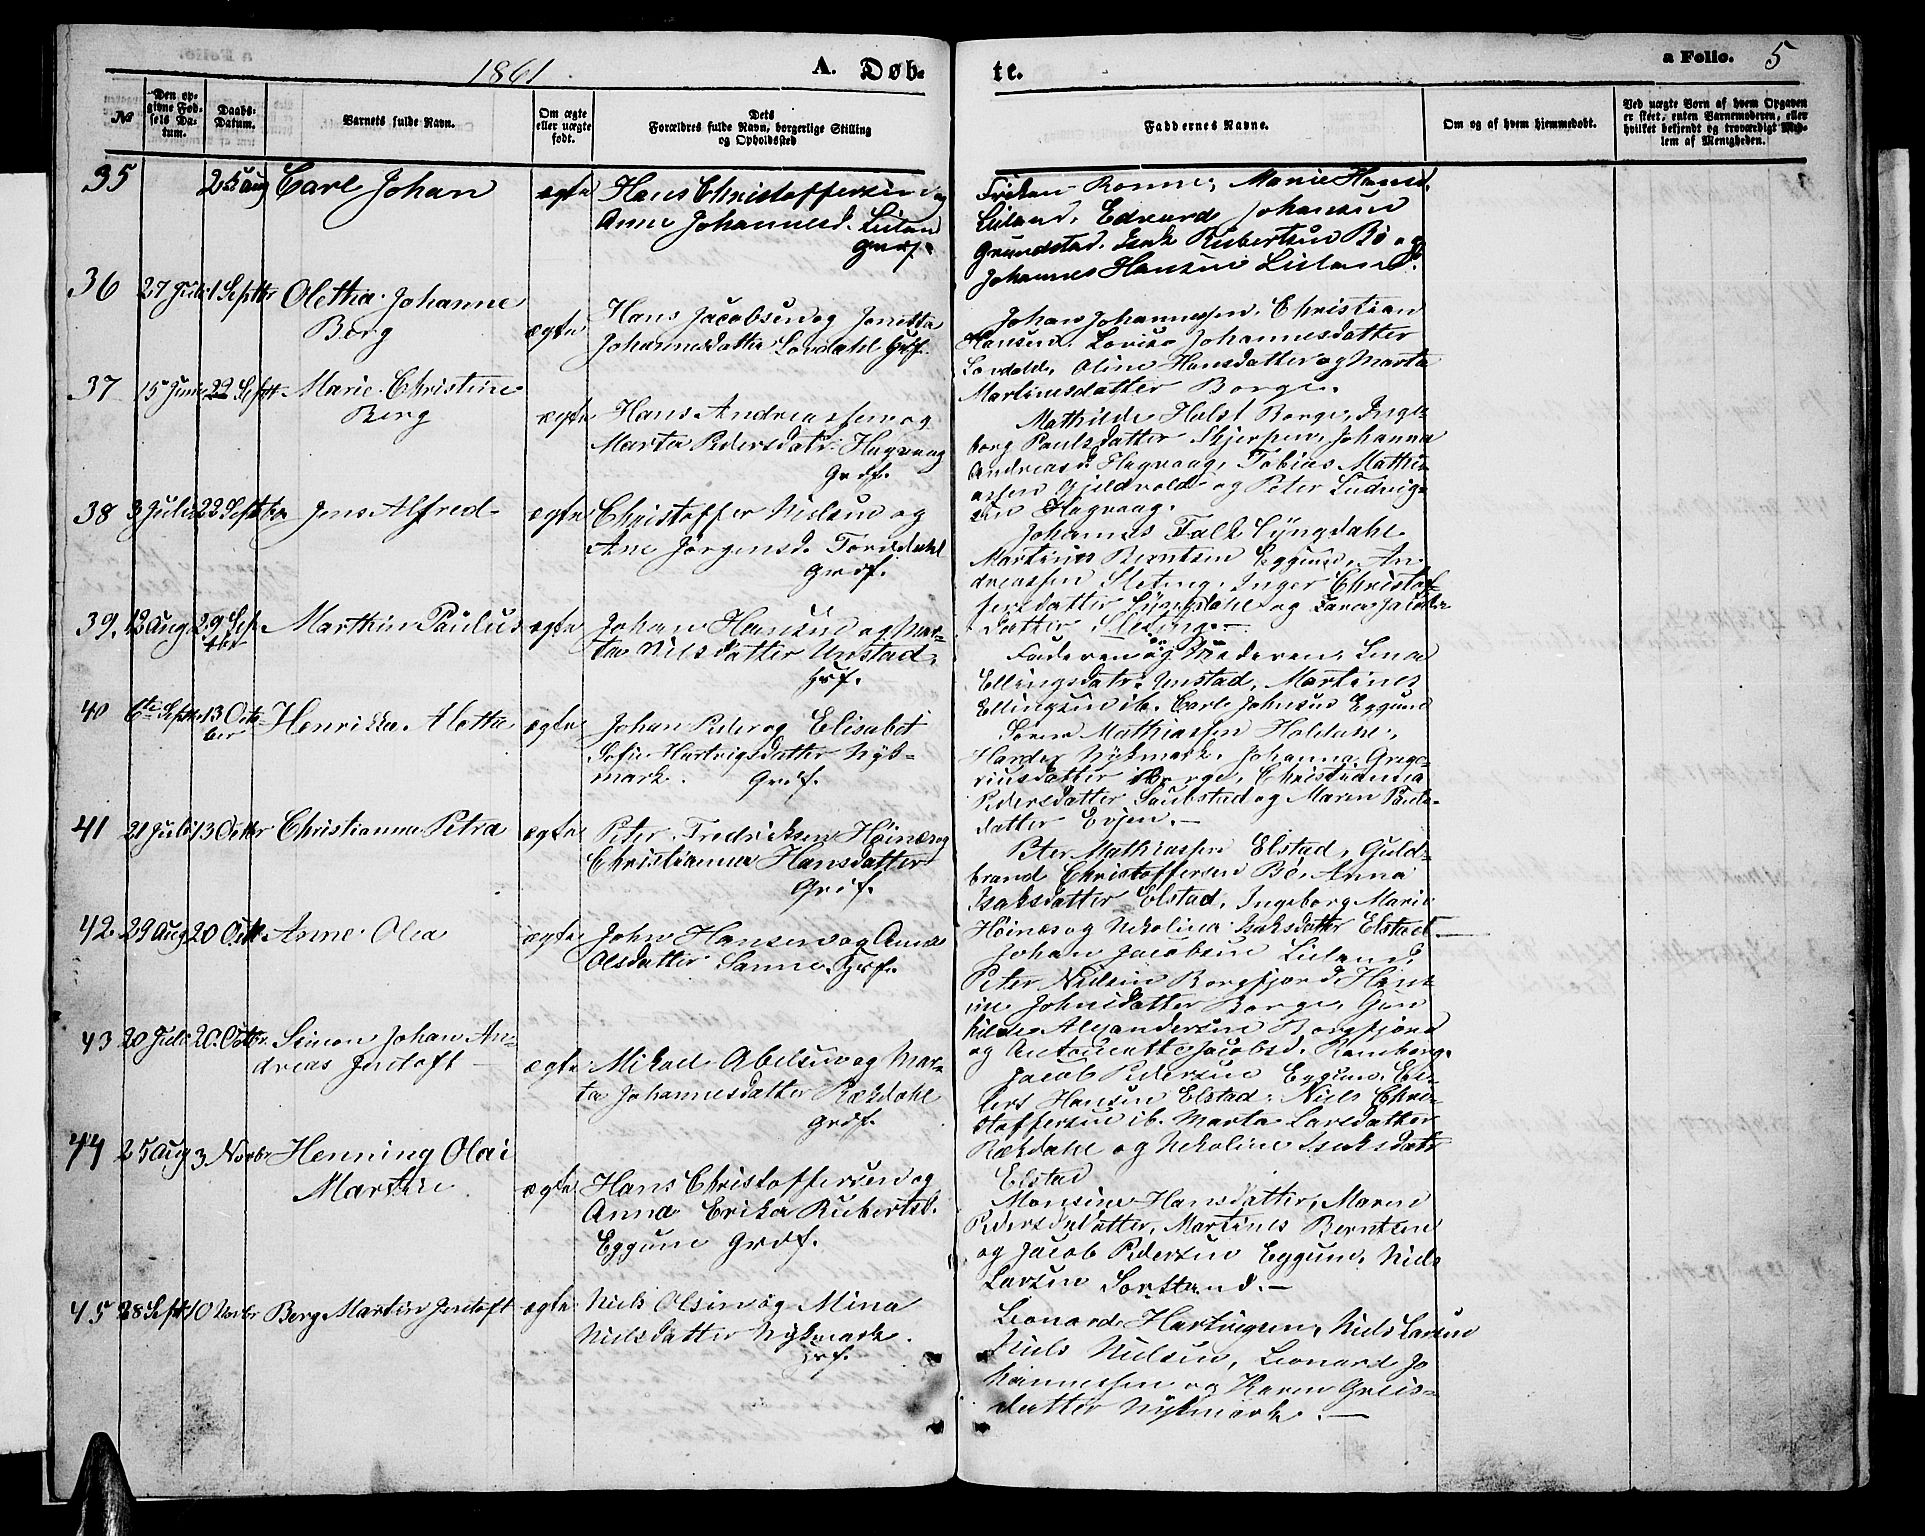 1861. A. Døb-
te. a Folio. 5
№
Den op-
givne Fød-
sels Da-
tum.
Daabs-
Datum.
Barnets fulde Navn.
Om ægte
eller uægte
født.
Dets
Forældres fulde Navn, borgerlige Stilling
og Opholdssted
Faddernes Navne.
Om og af hvem hjemmedøbt.
Ved uægte Børn af hvem Opgaven
er skeet, enten Barnemoderen, eller
hvilket bekjendt og troværdigt Med-
lem af Menigheden.
35 25 Aug Carl Johan ægte Hans Christoffersen og
Anne Johannesd. Liland
Grdf.
Marie Hansd.
Liland, Edvard Johansen
Grundstad, Isak Rubertsen Bø og
Johannes Hansen Liland.
36 27 Juli 1 Septbr Oletha Johanne
Berg
ægte Hans Jacobsen og Jenetta
Johannesdatter Lovdahl Grdf.
Johan Johannessen, Christian
Hansen, Lovise Johannesdatter
Lovdahl, Oline Hansdatter og Marta
Martinusdatter Borge.
37 15 Juni 22 Sept Marie Christine
Berg
ægte Hans Andreassen og
Marta Pedersdatr. Hagvaag
Grdf.
Mathilde Holst Borge, Inge-
borg Paulsdatter Skjerpen, Johanna
Andreasd. Hagvaag, Tobias Mathi-
assen Gjeldvold og Peter Ludvig-
sen Hagvaag.
38 3 Juli 22 Septbr Jens Alfred ægte Christoffer Nielsen og
Ane Jørgensd. Torvdahl
Grdf.
Johannes Falk Lyngdahl
Martinus Berntsen Eggum, An-
dreassen Sleting, Inger Christof-
fersdatter Lyngdahl og
datter Sleting. —
39. 12 Aug 29 Sep-
tbr
Marthin Paulus ægte Johan Hansen og Mar-
ta Nilsdatter Unstad,
Hrf.
Faderen og Moderen, Lina
Ellingsdatr. Unstad, Martines
Ellingsen ib. Carl Johnsen Eggum
40 6te Septbr. 13 Octo-
ber
Henrikka Aletta ægte Johan Peder og Elisabet
Sofie Hartvigsdatter Nyk-
mark. Grdf.
Søren Mathiassen Holdahl,
Harder Nykmark, Johanna Grege-
riusdatter Borge, Christianna
Pedersdatter Saubstad og Maren Pauls-
datter Evjen. —
41 21 Juli 13 Octbr Christianna Petra ægte Peter Fredriksen Høinæs og
Christianna Hansdatter
Grdf.
Peter Mathiassen Elstad, Guld-
brand Christoffersen Bø, Anna
Isaksdatter Elstad, Ingeborg Marie
Høinæs og Nikolina Isaksdatter Elstad —
42. 29 Aug 20 Octbr Anne Olea ægte John Hansen og Anne
Olsdatter Sanne. Hrf.
Johan Jacobsen Liland,
Peter Nielsen Borgfjord, Han-
ine Johnsdatter Borge, Gun-
hilde Alexandersen Borgfjord
og Antonette Jacobsd. Ramberg.
43 20 Juli 20. Octbr. Simon Johan An-
dreas Jentoft —
ægte Mikael Abelsen og Mar-
ta Johannesdatter Rækdahl
Grdf.
Jacob Pedersen Eggum, El-
lert Hansen Elstad, Niels Chri-
stoffersen ib. Marta Larsdatter
Rækdahl og Nikoline Isaksdatr
Elstad
44 25 Aug 3 Novbr Henning Olai
Martin
ægte Hans Christoffersen og
Anna Erika Rubertsd.
Eggum Grdf.
Monsine Hansdatter, Maren
Pedersdatter, Martines Berntsen
og Jacob Pedersen Eggum, Niels
Larsen Sortland. —
45 28 Septbr 10 Novbr Berg Martin Jentoft ægte Niels Olsen og Mina
Nielsdatter Nykmark.
Hrf.
Leonard Hartvigsen, Niels Larsen
Niels Nielsen, Leonard Jo-
hannessen og Karen Greis-
datter Nykmark. —